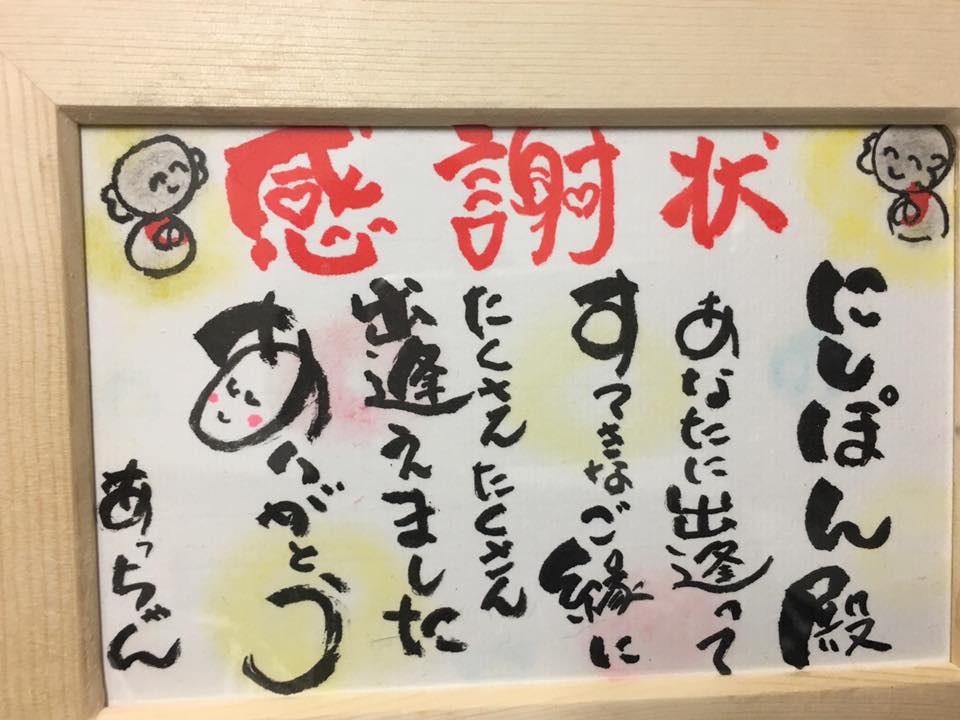 感謝状
にしぽん殿
あなたに出逢って
すてきなご縁に
たくさんたくさん
出逢えました
ありがとう
あっちゃん